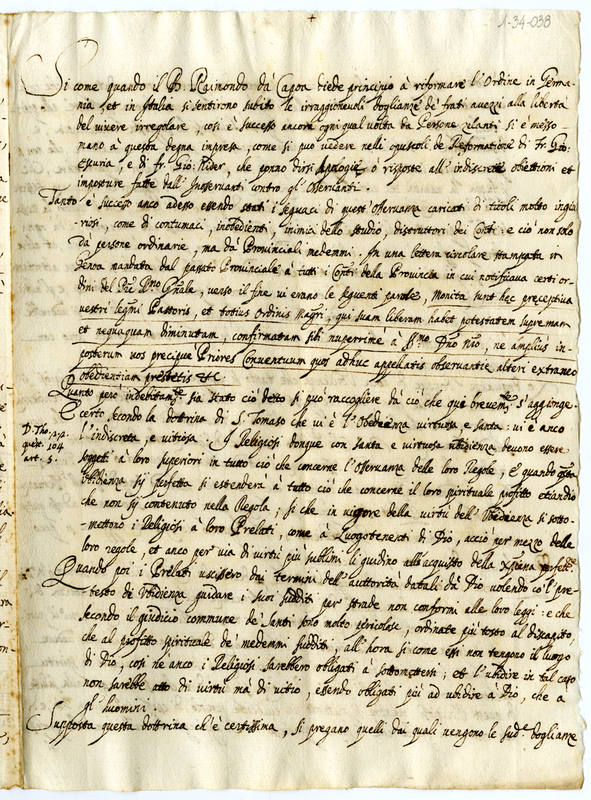 +
1-34-038
Si come quando il B. Raimondo da Capoa diede principio à riformare l'Ordine in Germa-
nia, et in Italia si sentirono subito le irraggionevoli doglianze de' frati avezzi alla libertà
del vivere irregolare, così è successo ancora ogni qual volta da Persone zelanti si è messo
mano à questa degna impresa, come si può vedere nelli opuscoli de Reformatione di fr. Gio:
e di fr. Gio: Nider, che ponno dirsi Apologie, o risposte all'indiscrete obiettioni et
imposture fatte dall' contro gl'Osservanti.
Tanto è successo anco adesso essendo stati i seguaci di quest'osservanza caricati di titoli molto ingiu-
riosi, come di contumaci, inobedienti, inimici dello studio, distruttori dei Conti: e ciò non solo
da persone ordinarie, ma da Provinciali medemmi. In una lettera circolare stampata in
Genoa mandata dal passato Provinciale à tutti i Conti della Provincia in cui notificava certi or-
dini del Rmo Gñale, verso il fine vi erano le seguenti parole, Monita sunt hec preceptiva
vestri legmi Pastoris, et totius Ordinis Magri, qui suam liberam habet potestatem supremam
et nequaquam diminutam, confirmatam sibi nuperrime à Smo Dno Nro, ne amplius in-
posterum vos precipue Priores Conventuum quos adhuc appellatis observantie alteri extraneo
obedientiam prestetis &c.
Quanto pero indebitamte sia stato ciò detto si può raccogliere da ciò che qui brevemte s'aggionge.
Certo secondo la dottrina di S. Tomaso che vi è l'Obedienza virtuosa, e santa: vi è anco
D. Tho.
quest. 104
art. 5.
l'indiscreta, e vitiosa. I Religiosi donque con santa e virtuosa ubidienza devono essere
soggetti à loro superiori in tutto ciò che concerne l'Osservanza delle loro Regole, e quando
ubidienza sij perfetta si estenderà à tutto ciò che concerne il loro spirituale profitto etiandio
che non sij contenuto nella Regola; si che in vigore della virtù dell'Ubedienza si sotto-
-mettono i Religiosi à loro Prelati, come à Luogotenenti di Dio, acciò per mezzo delle
loro regole, et anco per via di virtù più sublimi li guidino all'acquisto della xpiana perfett.
Quando poi i Prelati uscissero dai termini dell'auttorità datali da Dio volendo co'l pre-
testo di Ubidienza guidare i suoi sudditi per strade non conformi alle loro leggi: e che
secondo il giudicio commune de' Santi sono molto pericolose, ordinate più tosto al discapito,
che al profitto spirituale de' medemmi sudditi; all'hora si come essi non tengono il luogo
di Dio, così ne anco i Religiosi sarebbero obligati à sottomettersi; et l'ubidire in tal caso
non sarebbe atto di virtù mà di vitio, essendo obligati più ad ubidire à Dio, che a
gl'huomini.
Supposta questa dottrina ch'è certissima, si pregano quelli dai quali vengono le sude. doglianze